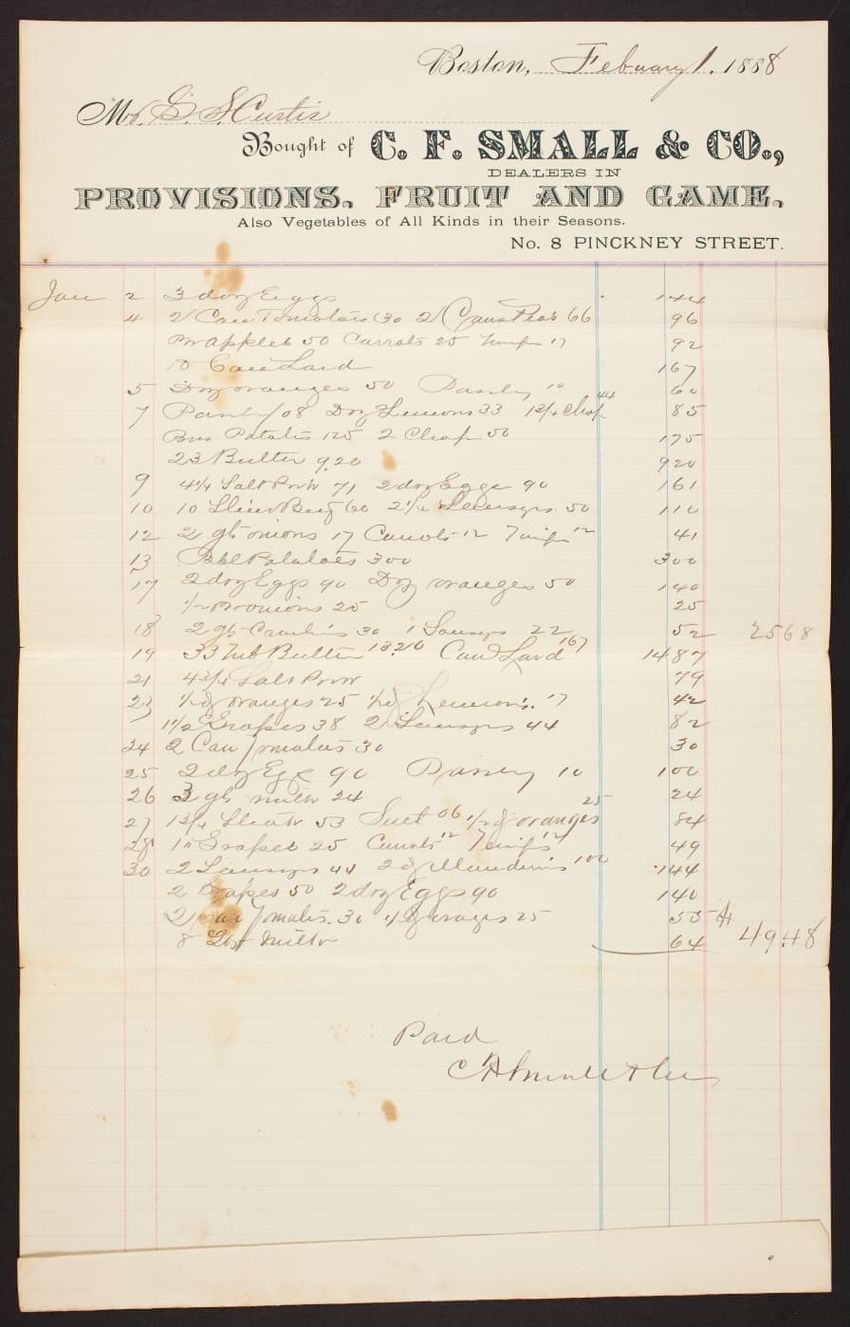 Boston, February 1. 1888
Mr. E. S. Curtis
Bought of C. F. SMALL & CO.,
DEALERS IN
PROVISIONS, FRUIT AND GAME,
Also Vegetables of All Kinds in their Seasons.
No. 8 PINCKNEY STREET.
Jan 2 3 doz Eggs 144
4 2 Can Tomatoes 30 2 Cans Peas 66 96
Apples 50 Carrots 25 17 92
10 Can Lard 167
5 Doz oranges 50 Parsley 10 60
7 Parsley 08 Doz Lemons 33 1 3/4 Chop 44 85
Bus Potatoes 125 2 Chop 50 175
23 Butter 9.20 920
9 4 1/4 Salt Pork 71 2 doz Eggs 90 161
10 10 Beef 60 2 1/4 50 110
12 2 qts onions 17 Carrots 12 Turnips 12 41
13 Bbl Potatoes 300 300
17 2 doz Eggs 90 Doz oranges 50 140
1/2 onions 25 25
18 2 qts 30 1 22 52 2568
19 33 Tub Butter 1320 Can Lard 167 1487
21 4 3/4 Salt Pork 79
23 1/2 d oranges 25 1/2 d Lemons. 17 42
1 1/2 Grapes 38 2 44 82
24 2 Can Tomatoes 30 30
25 2 doz Eggs 90 Parsley 10 100
26 3 qts milk 24 24
27 1 3/4 Steak 53 Suet 06 1/2 d oranges 25 84
28 Grapes 25 Carrots 12 Turnips 12 49
30 2 44 2 d Mandarins 100 144
2 Grapes 50 2 doz Eggs 90 140
2 Can Tomatoes. 30 1/2 d oranges 25 55
8 64 49.48
Paid